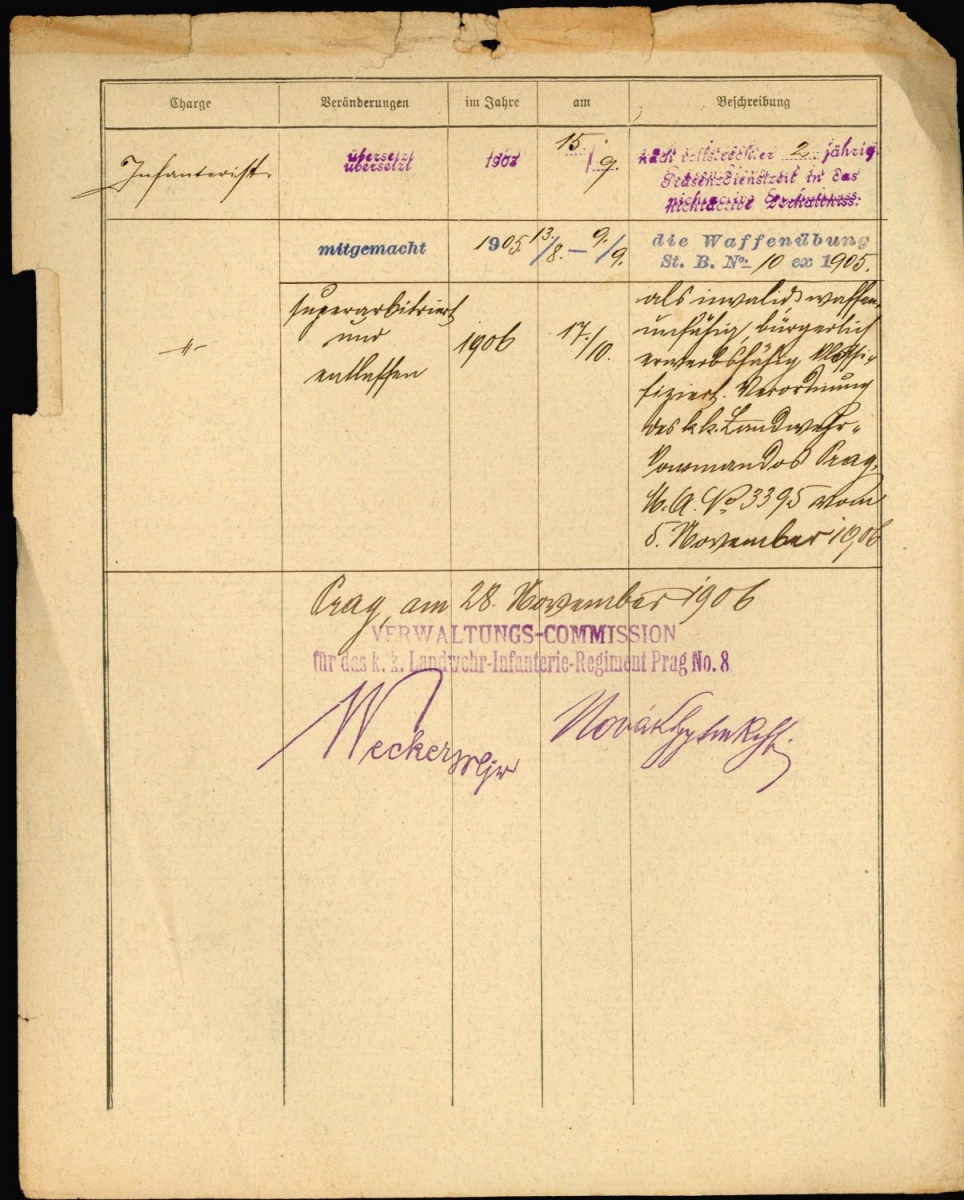 Charge Veränderungen im Jahre am Beschreibung
Infanterist übersetzt 15./9. nach vollstreckter 2 jährig.
Präsenzdienstzeit in das
nichtactive Verhältniss.
mitgemacht 1905. 13./8. – 9./9. die Waffenübung
St. B. No. 10 ex 1905.
-"- superarbitriert und entlassen 1906 17./10. als invalid, waffen-
unfähig, bürgerlich
erwerbsfähig klassi-
fiziert. Verordnung
des k.k. Landwehr-
kommandos Prag,
M.A. No 3395 vom
5. November 1906
Prag, am 28. November 1906
VERWALTUNGS-COMMISSION
für das k. k. Landwehr-Infanterie-Regiment Prag No. 8
Wecker Mjr
Novák